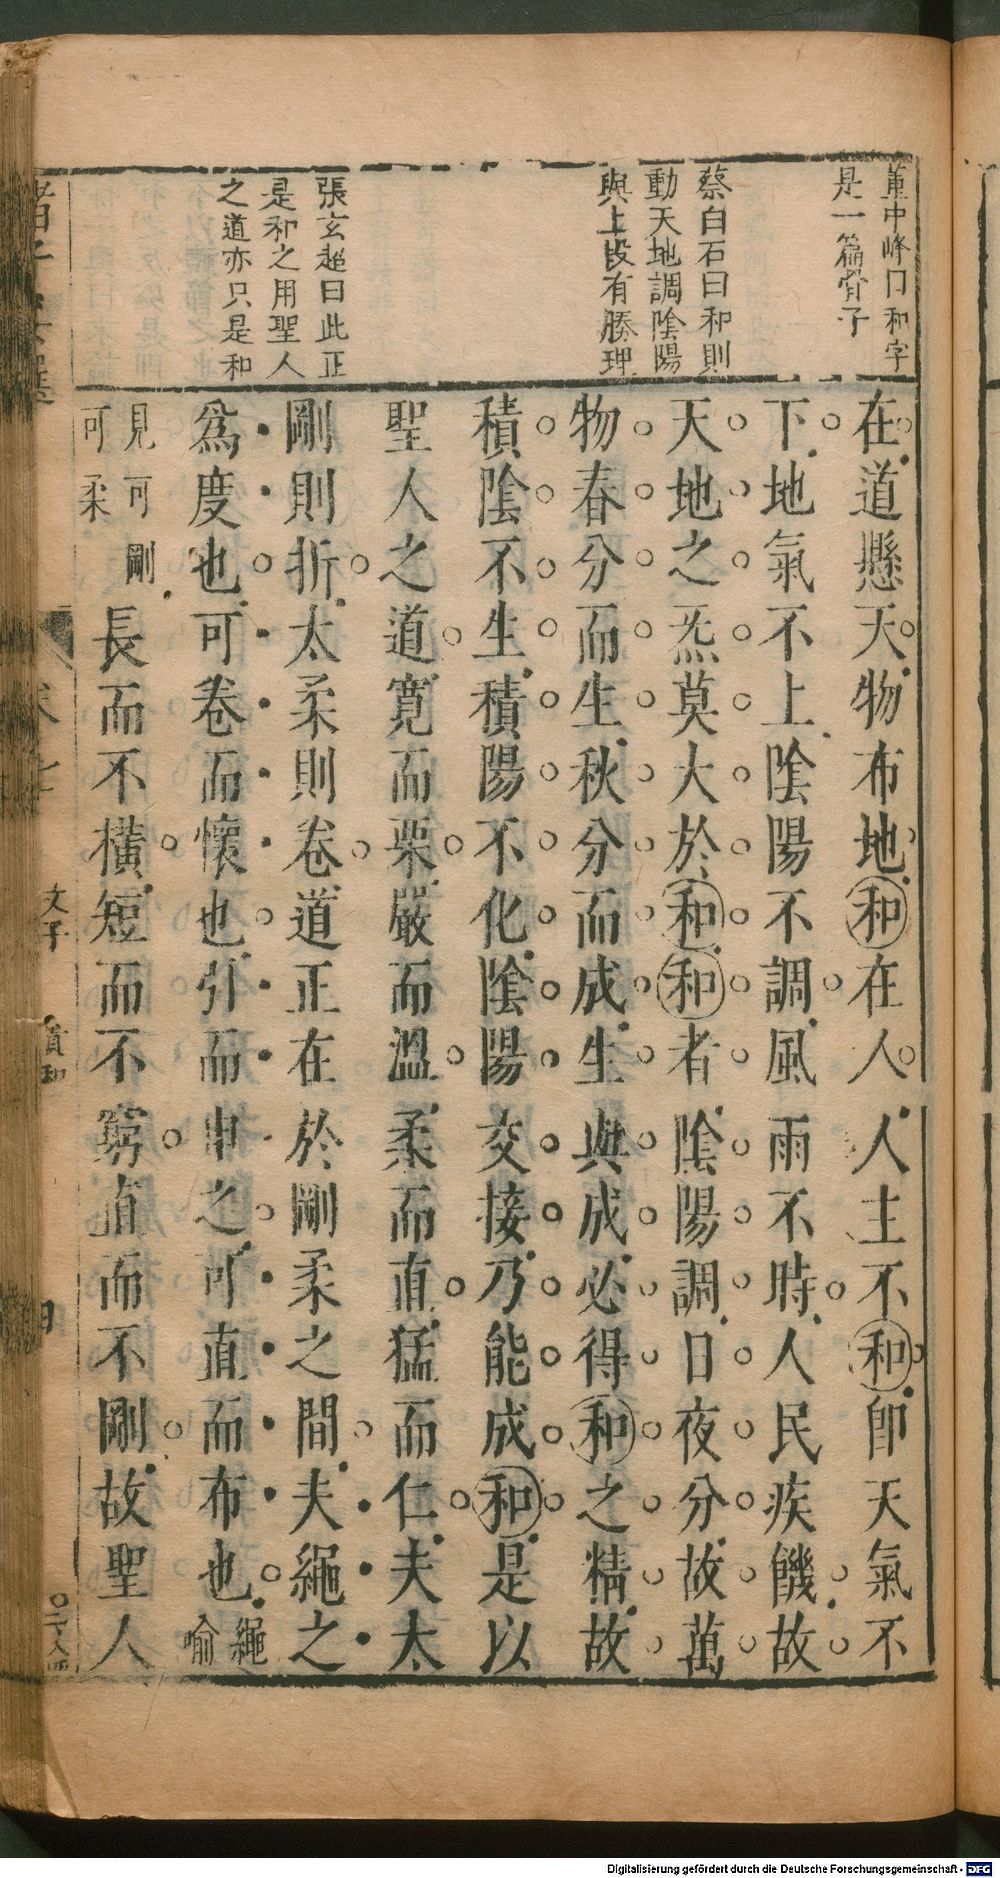 董中峰曰和字
是一篇骨子
蔡白石曰和則
動天地調陰陽
與上段有勝理
張玄超曰此正
是和之用聖人
之道亦只是和
在道懸天物布地和在人人主不和卽天氣不
下地氣不上陰陽不調風雨不時人民疾饑故
天地之炁莫大於和和者陰陽調日夜分故萬
物春分而生秋分而成生與成必得和之精故
積陰不生積陽不化陰陽交接乃能成和是以
聖人之道寬而栗嚴而溫柔而直猛而仁夫太
剛則折太柔則卷道正在於剛柔之間夫繩之
為度也可卷而懷也引而申之可直而布也繩喻
見可剛可柔長而不橫短而不窮直而不剛故聖人
文子
Digitalisierung gefördert durch die Deutsche Forschungsgemeinschaft - DFG